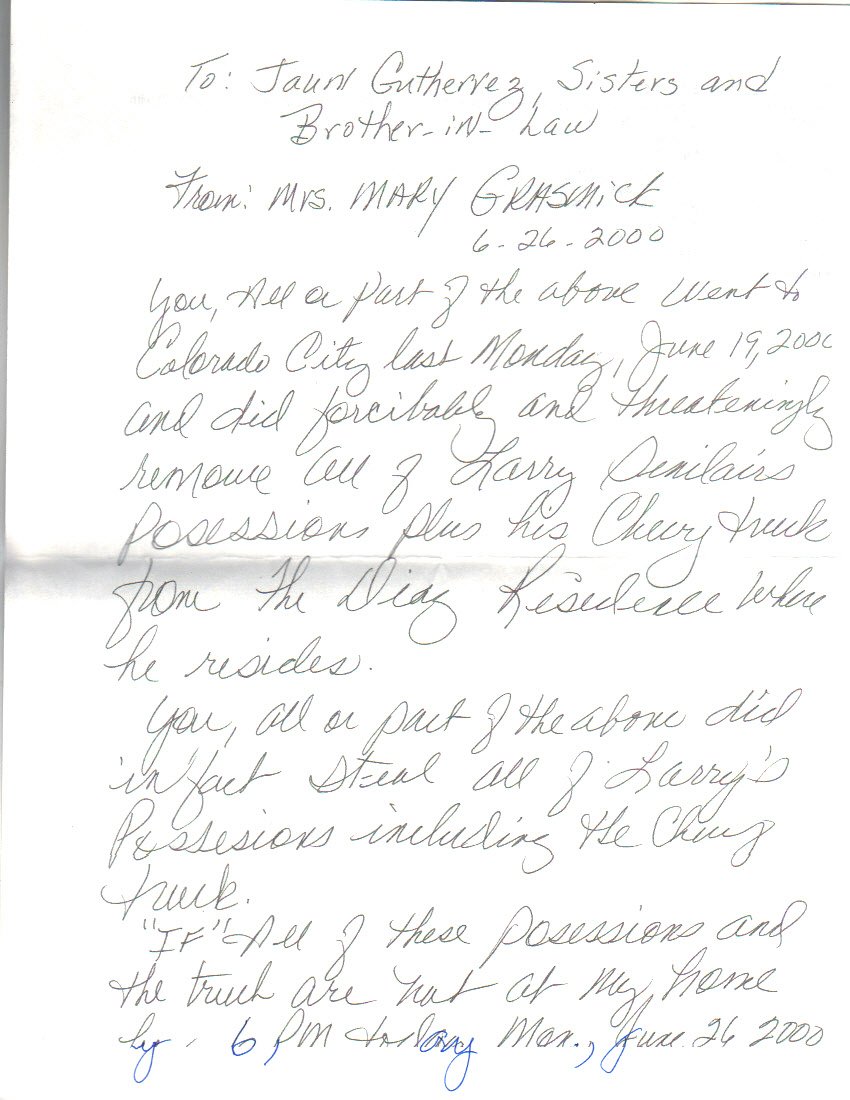 To: Jaun Gutherrez, Sisters and
Brother-in-Law
From: Mrs. MARY GRASMICK
6-26-2000
You, All or Part of the above went to
Colorado City last Monday, June 19, 2000
and did forcibably and threateningly
remove all of Larry Sinilairs
Posessions plus his Chevy truck
from the Diaz Residence where
he resides.
You, all or part of the above did
in fact steal all of Larry's
Possesions including the Chevy
truck.
"IF" All of these posessions and
the truck are not at my home
by 6 PM today Mon., June 26 2000